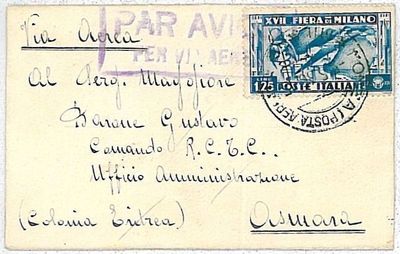 Via Aerea
PAR AVION
PER VIA AEREA
XVII FIERA DI MILANO
LIRE 1,25 POSTE ITALIANE
(POSTA AEREA)
Al Serg. Maggiore
Barone Gustavo
Comando R.C.T.C..
Ufficio Amministrazione
(Colonia Eritrea) Asmara